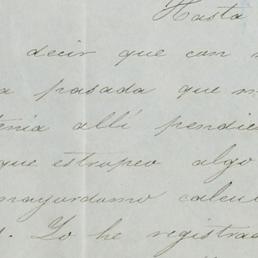 Hasta
decir que con
a pasada que m
tenia allí pendie
que estropeo algo
mayordomo calcu
s. Lo he registrad